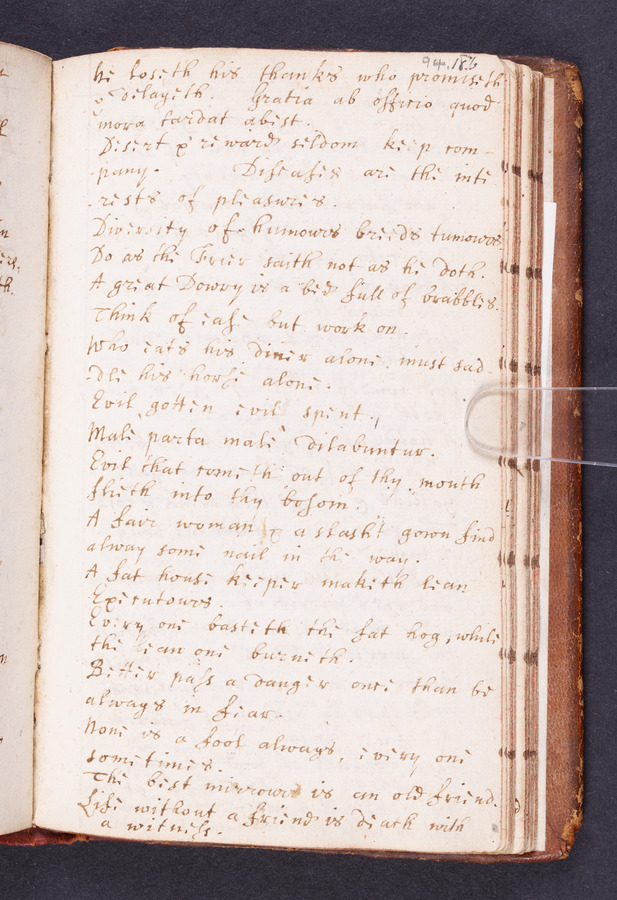 94. 186
he loseth his thanks who promiseth
& delayeth. Gratia ab officio quod
mora tardat abest.
Desert & reward seldom keep com-
-pany. Diseases are the inte
-rests of pleasures.
Diversity of humours breeds tumours
Do as the Frier saith not as he doth.
A great Dowry is a bed full of brabbles.
Think of ease but work on.
Who eats his diner alone must sad-
-dle his horse alone.
Evil gotten evil spent,
Male parta male dilabuntur.
Evil that cometh out of thy mouth
flieth into thy bosom.
A fair woman & a slasht gown find
alway some nail in the way.
A fat house keeper maketh lean
Executours.
Every one basteth the fat hog, while
the lean one burneth.
Better pass a danger once than be
always in fear.
None is a fool always, every one
sometimes.
The best mirrour is an old friend.
Life without a friend is death with
a witness.